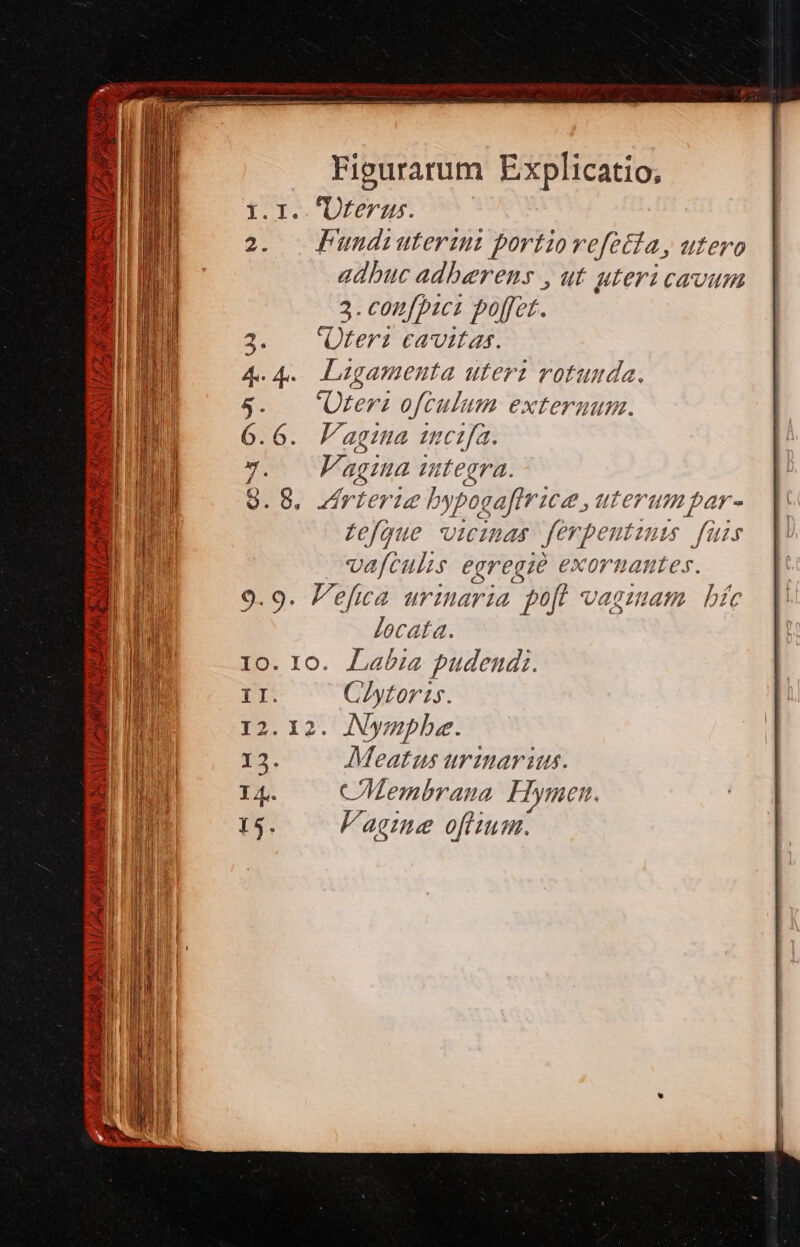 Figurarum Explicatio.
1.1. Uterus.
2. Fundi uterini portio reſecta, utero
adhuc adhærens, ut uteri cavum
3. conſpici poſſet.
3. Uteri cavitas.
4.4. Ligamenta uteri rotunda.
5. Uteri oſculum externum.
6.6. Vagina inciſa.
7. Vagina integra.
8.8. Arteriæ hypogaſtricæ, uterum par-
teſque vicinas ſerpentinis ſuis
vaſculis egregiè exornantes.
9.9. Veſica urinaria poſt vaginam hîc
locata.
10.10. Labia pudendi.
11. Clytoris.
12.12. Nymphæ.
13. Meatus urinarius.
14. Membrana Hymen.
15. Vaginæ oſtium.